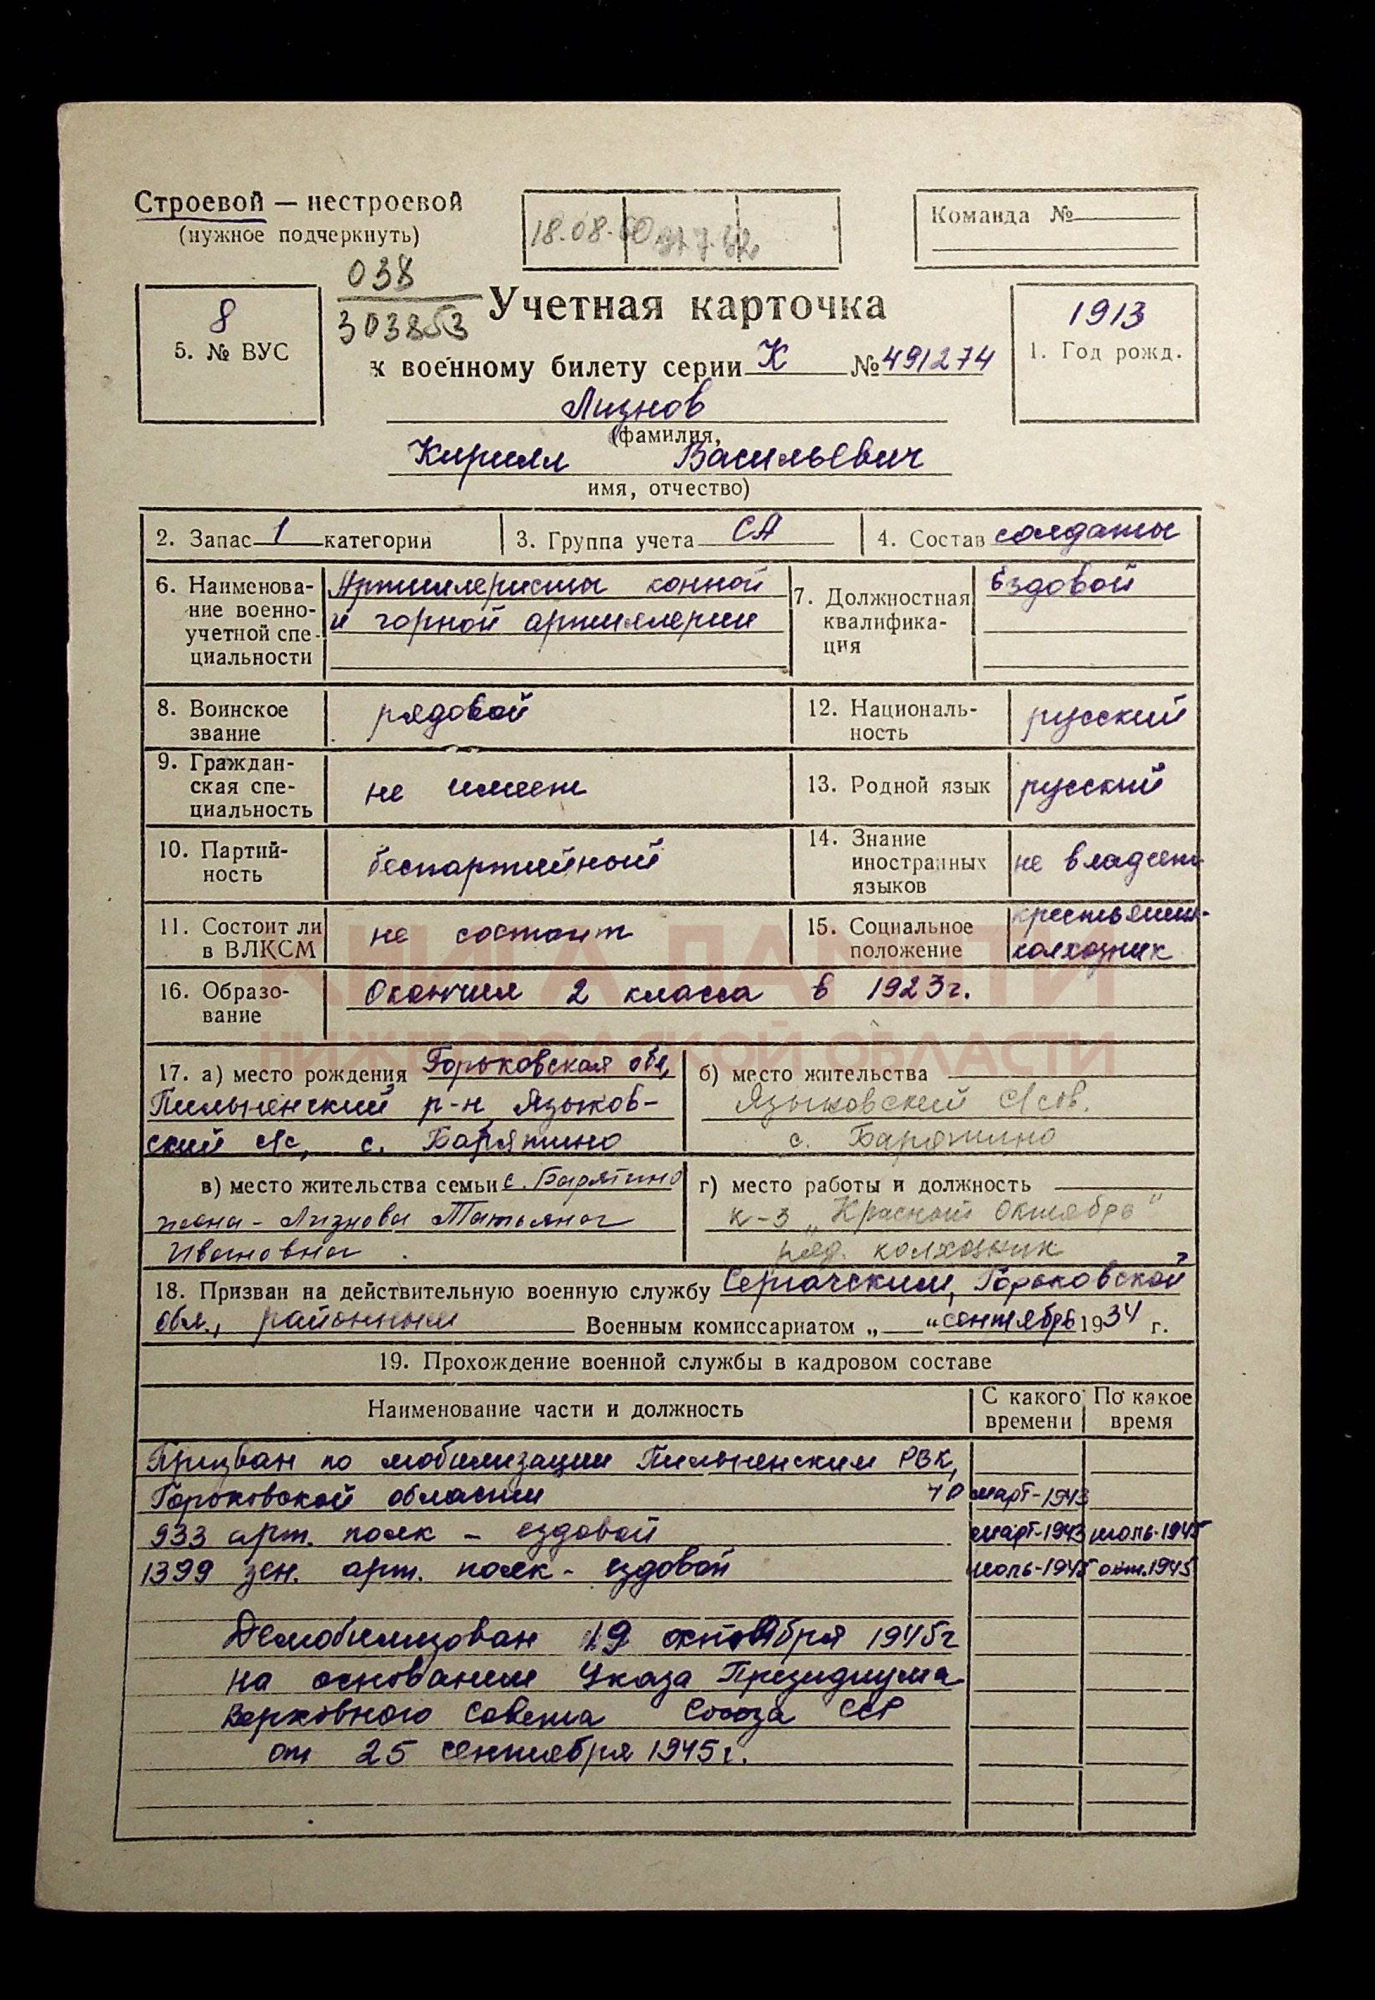 Строевой — нестроевой
(нужное подчеркнуть)
18.08.60
Команда №
038
303853
8
5. № ВУС
Учетная карточка
к военному билету серии К № 491274
1913
1. Год рожд.
Лизнов
(фамилия,
Кирилл Васильевич
имя, отчество)
2. Запас 1 категории
3. Группа учета СА
4. Состав солдаты
6. Наименова-
ние военно-
учетной спе-
циальности
Артиллеристы конной
и горной артиллерии
7. Должностная
квалифика-
ция
Ездовой
8. Воинское
звание
рядовой
12. Националь-
ность
русский
9. Граждан-
ская спе-
циальность
не имеет
13. Родной язык
русский
10. Партий-
ность
беспартийный
14. Знание
иностранных
языков
не владеет
11. Состоит ли
в ВЛКСМ
не состоит
15. Социальное
положение
крестьянин-
колхозник
16. Образо-
вание
Окончил 2 класса в 1923г.
КНИГА ПАМЯТИ
НИЖЕГОРОДСКОЙ ОБЛАСТИ
17. а) место рождения Горьковская обл,
Пильненский р-н Языков-
ский с/с, с. Барятино
б) место жительства
Языковский с/сов.
с. Барятино
в) место жительства семьи с. Барятино
жена - Лизнова Татьяна
Ивановна
г) место работы и должность
к-з „Красный Октябрь"
ряд. колхозник
18. Призван на действительную военную службу Сергачским, Горьковской
обл., районным Военным комиссариатом „ " сентябрь 1934 г.
19. Прохождение военной службы в кадровом составе
Наименование части и должность
С какого
времени
По какое
время
Призван по мобилизации Пильненским РВК,
Горьковской области март-1943
933 арт. полк - ездовой март-1943 июль-1945
1399 зен. арт. полк - ездовой июль-1945 окт.1945
Демобилизован 19 октября 1945г
на основании Указа Президиума
Верховного Совета Союза ССР
от 25 сентября 1945г.